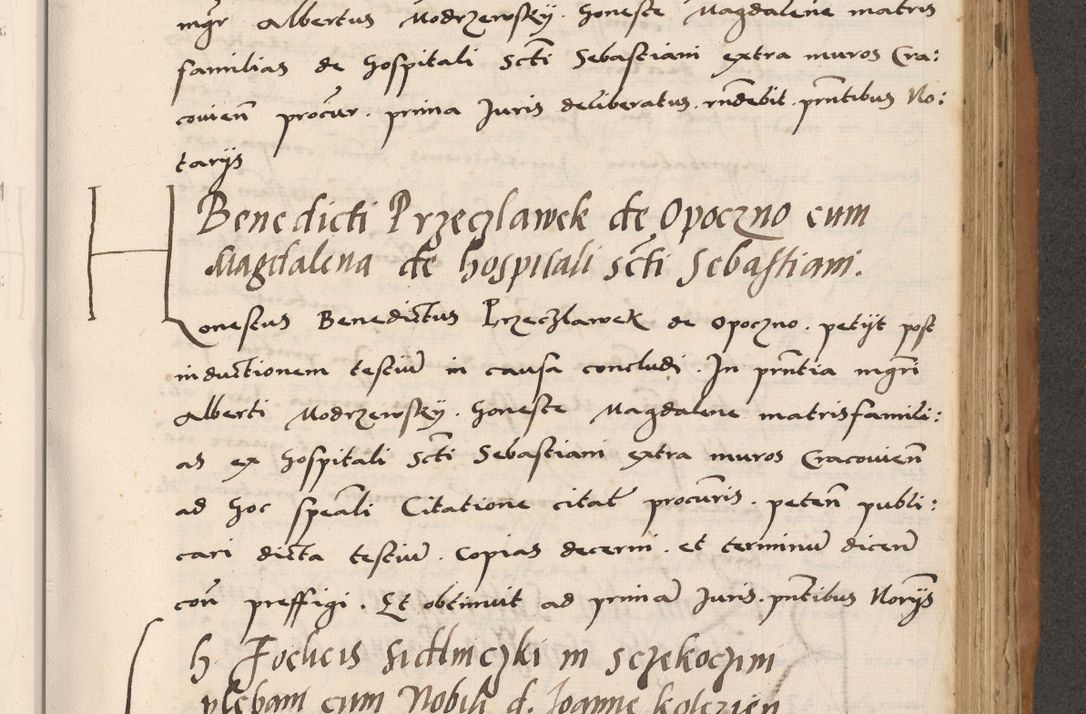 mgr Albertus Modrzewsky. Honeste Magdalene matris
familias de Hospitali Scti Sebastiani extra muros Cra:
couien procur. prima Juris deliberatus. rndebit. prntibus No:
tarijs
Benedicti Przeczlawek de Opoczno cum
Magdalena de hospitali scti Sebastiani.
Honestus Benedictus Przeczlawek de Opoczno. petijt post
inductionem testiu in causa concludi. In prntia mgri
Alberti Modrzewsky. Honeste Magdalene matrisfamili:
as ex Hospitali Scti Sebastiani extra muros Cracouien
ad hoc speali Citatione citat procuris. peten publi:
cari dicta testiu. Copias decerni. et terminu dicen
con preffigi. Et obtinuit ad prima Juris. pntibus Norijs
h. Focheis Siedlniczki in Sczekoczini
plebam cum Nobili d. Joanne